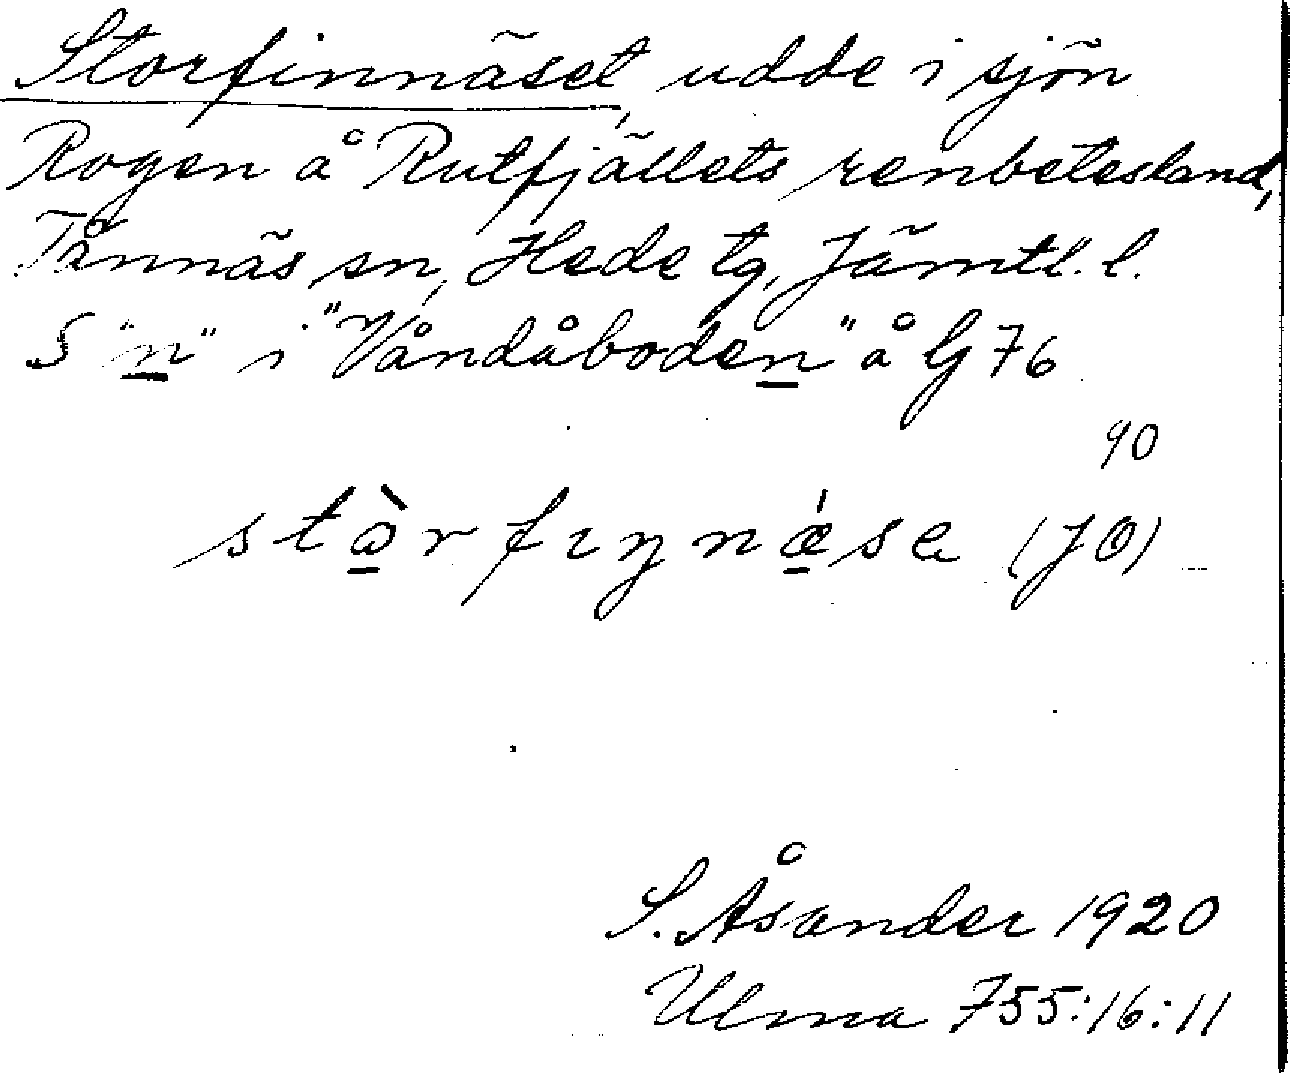 Storfinnäset, udde i sjön
Rogen å Rutfjällets renbetesland,
Tännäs sn, Hede tg, Jämtl. l.
S "n" i "Våndåboden" å G 76
90
stòrfıŋnǽsa (JO)
S. Åsander 1920
Ulma 755:16:11